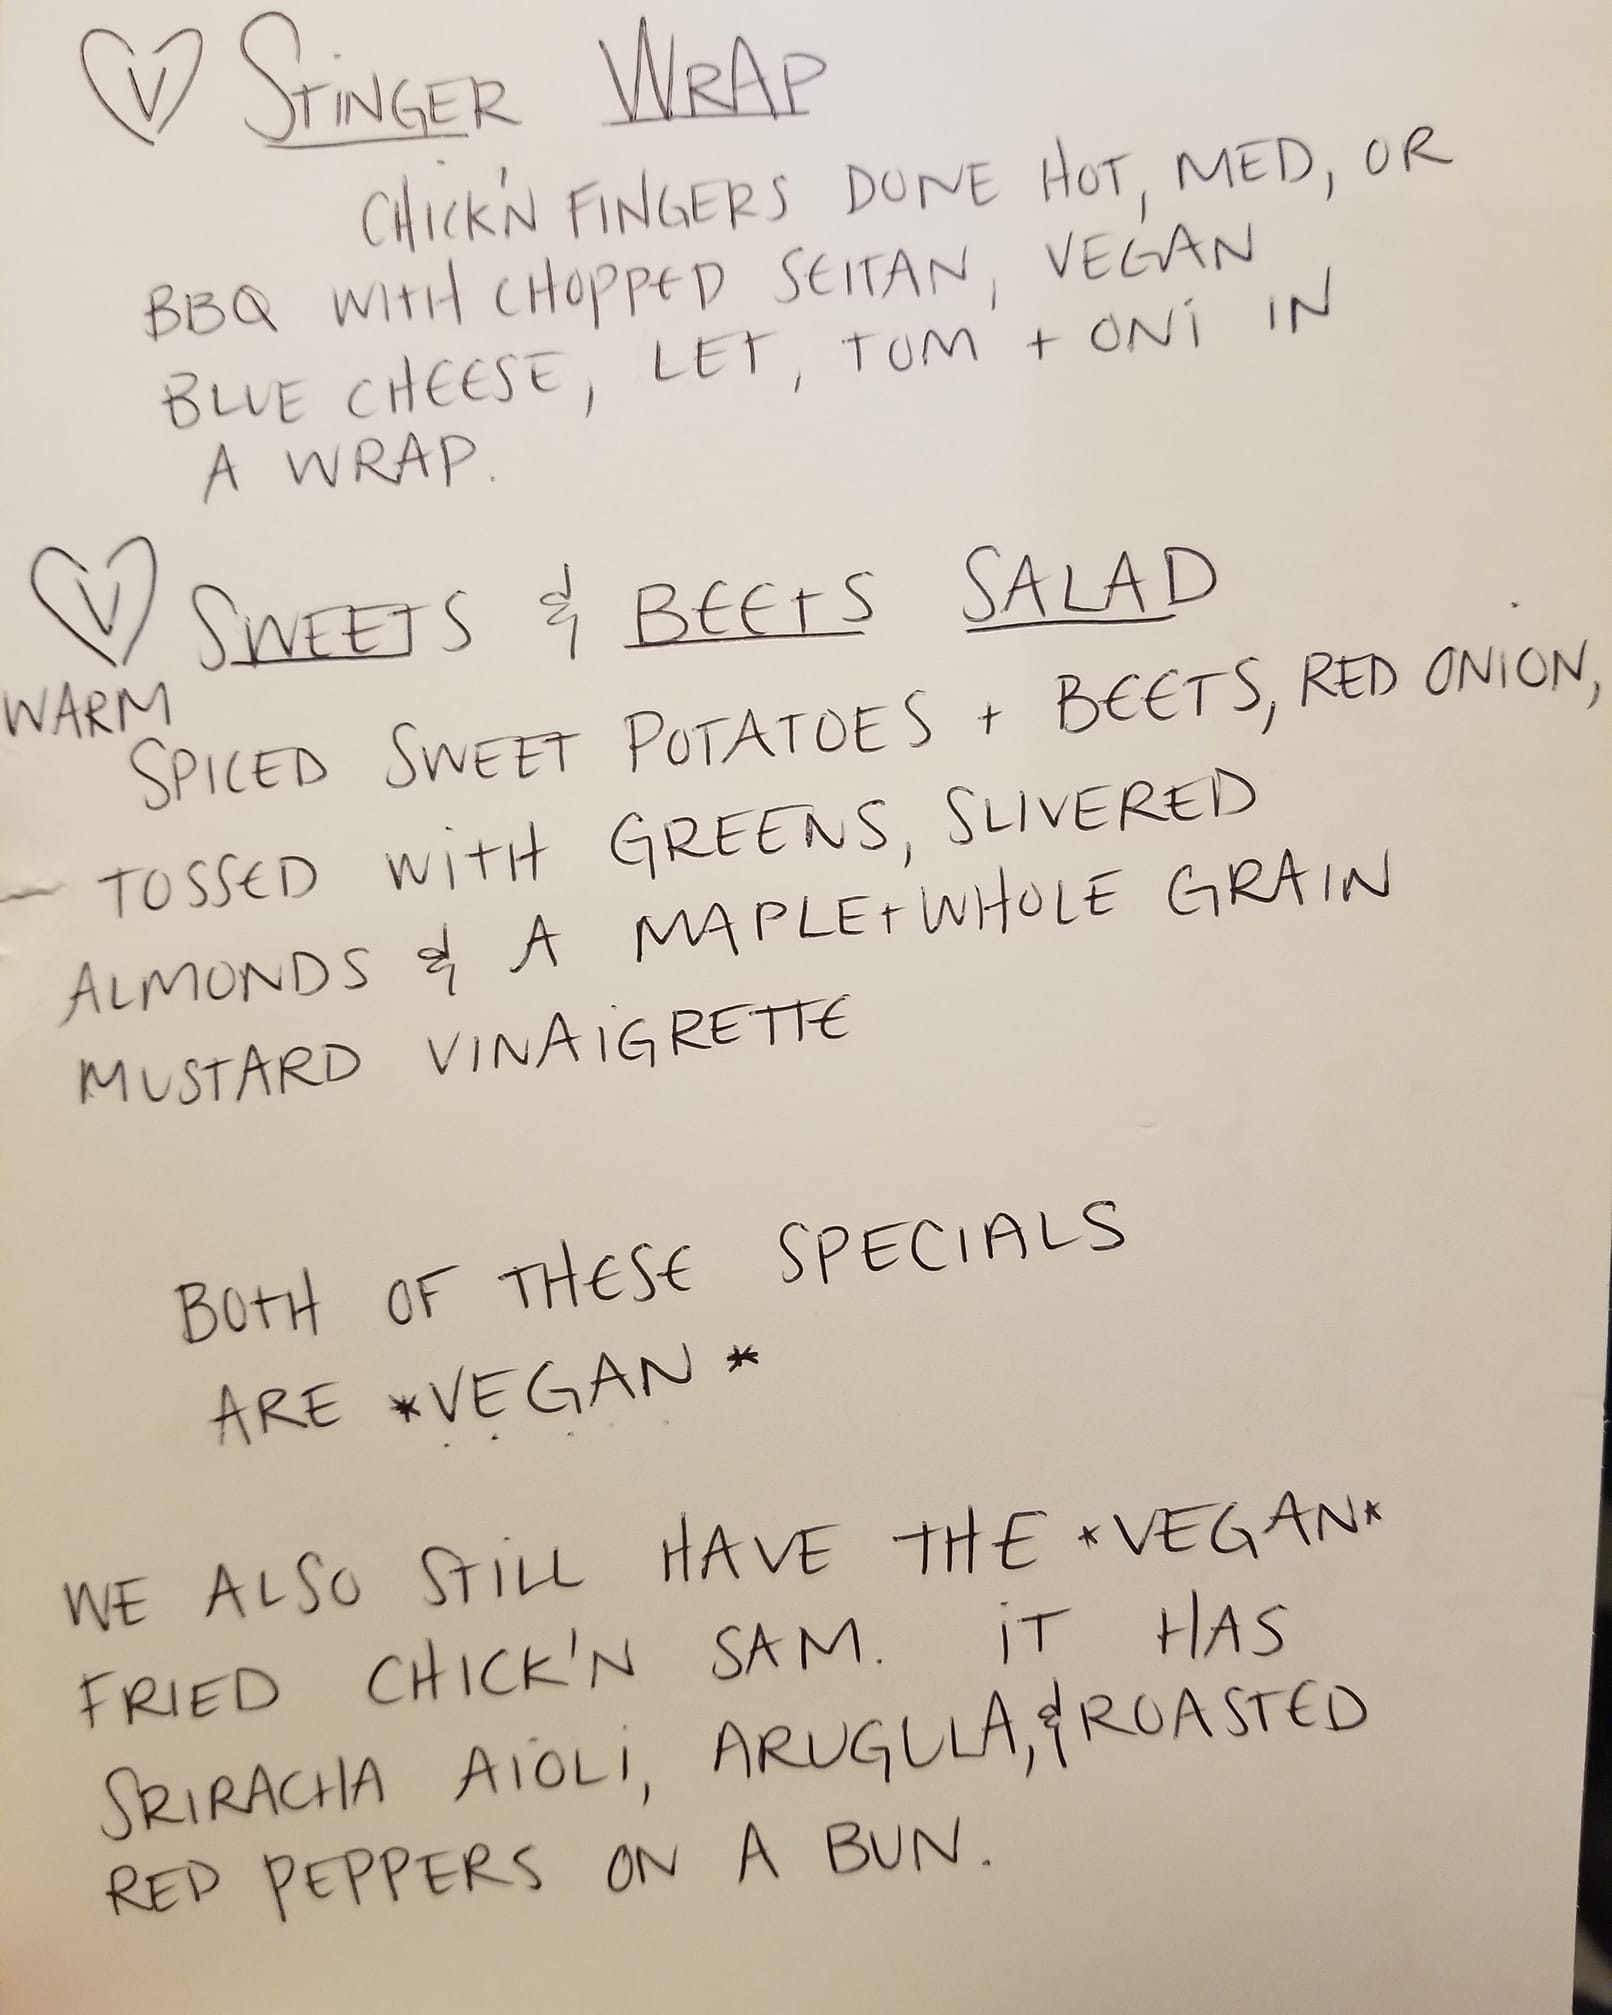 V STINGER WRAP
CHICK'N FINGERS DONE HOT, MED, OR
BBQ WITH CHOPPED SEITAN, VEGAN
BLUE CHEESE, LET, TOM + ONI IN
A WRAP.
V SWEETS & BEETS SALAD
WARM
SPICED SWEET POTATOES + BEETS, RED ONION,
TOSSED WITH GREENS, SLIVERED
ALMONDS & A MAPLE + WHOLE GRAIN
MUSTARD VINAIGRETTE
BOTH OF THESE SPECIALS
ARE *VEGAN*
WE ALSO STILL HAVE THE *VEGAN*
FRIED CHICK'N SAM. IT HAS
SRIRACHA AIOLI, ARUGULA, & ROASTED
RED PEPPERS ON A BUN.